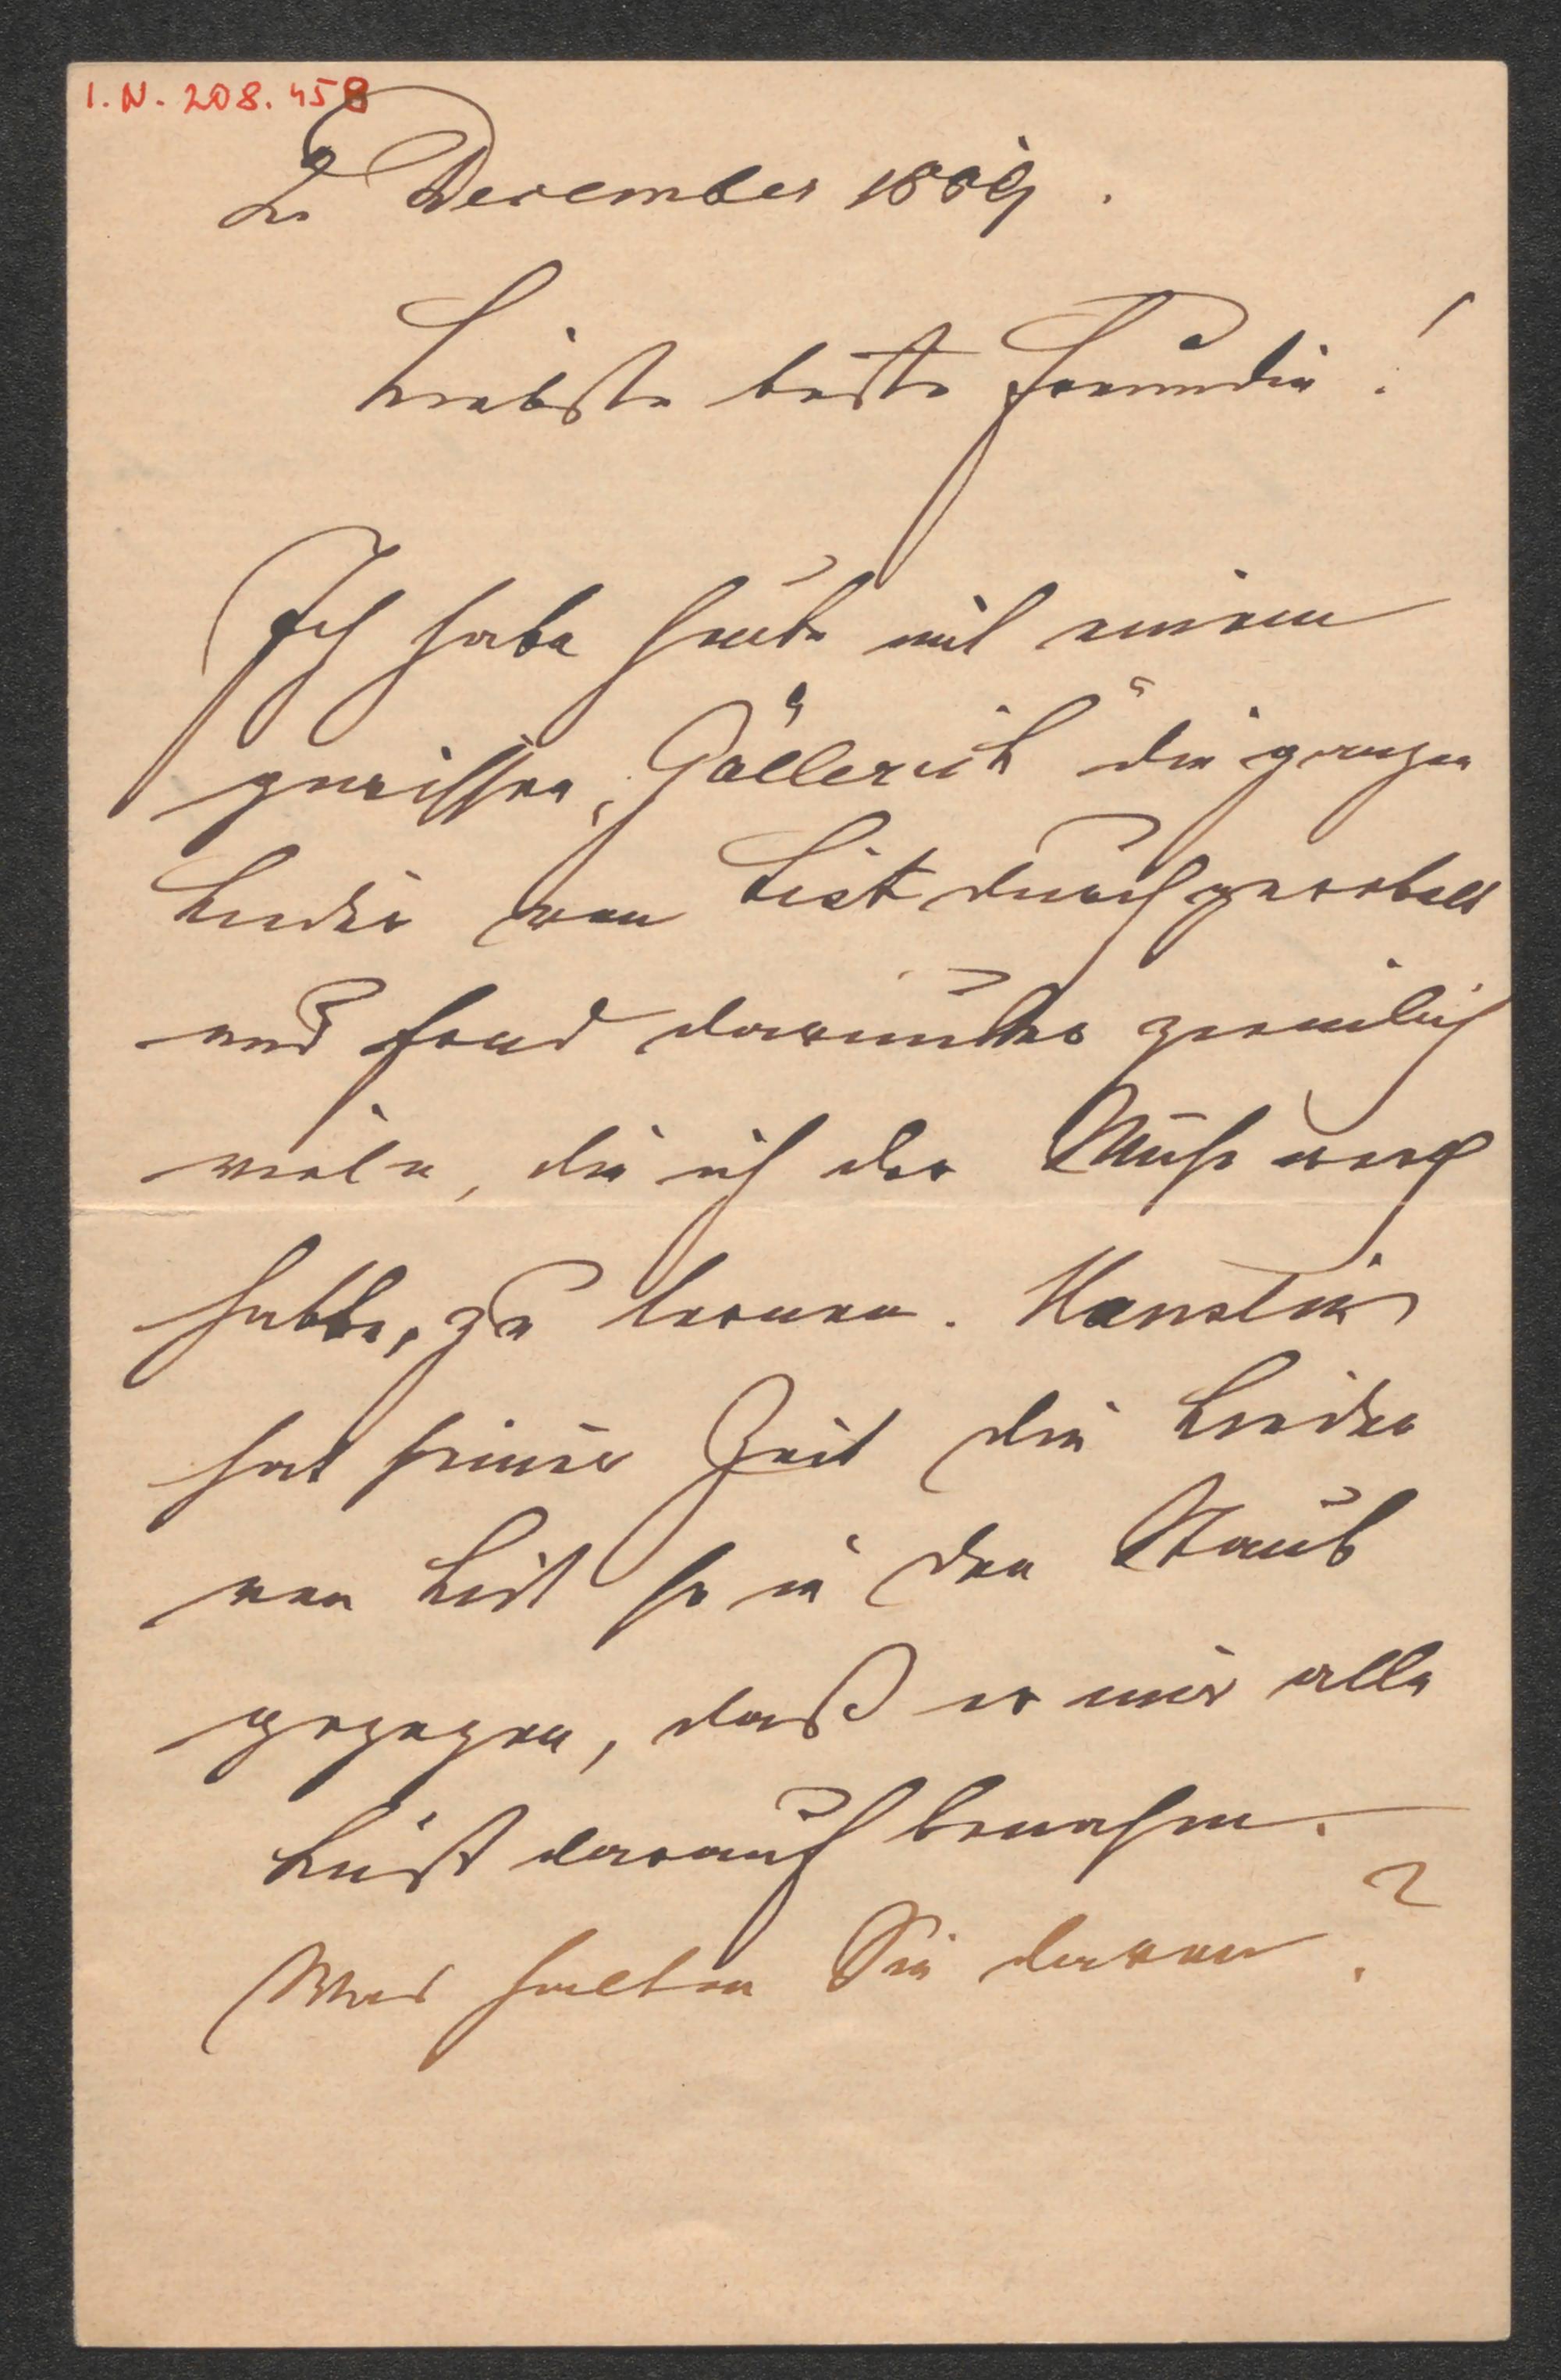 I.N. 208.458
2 December 1889.
Liebste beste Freundin!
Ich habe heute mit einem
gewissen „Göllerich“ die ganzen
Lieder von List durchgeorbelt
und fand darunter ziemlich
viele, die ich der Mühe werth
hatte, zu lernen. Hanslik
hat seiner Zeit die Lieder
von List so in den Staub
gezogen, daß er mir alle
Lust darauf benahm.
Was halten Sie davon?